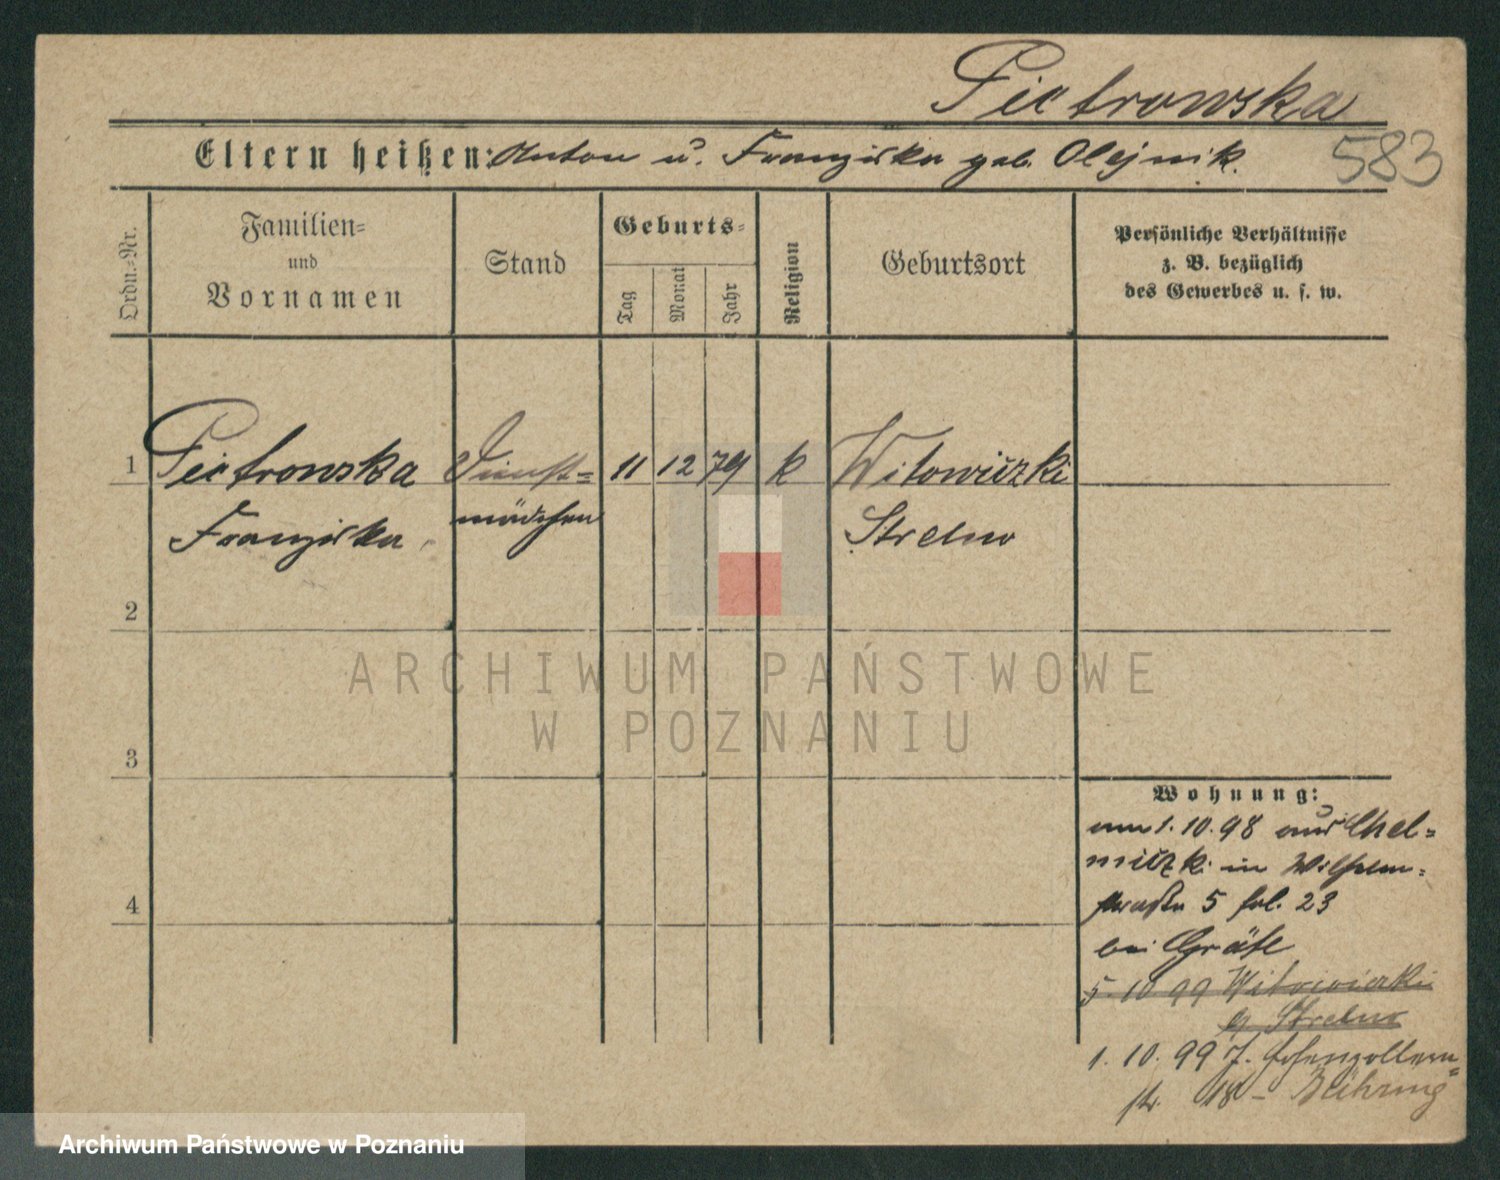 Pietrowska
Eltern heißen: Anton u. Franziska geb. Olejnik.
583
Ordn.-Nr.
Familien-
und
Vornamen
Stand
Geburts-
Tag
Monat
Jahr
Religion
Geburtsort
Persönliche Verhältnisse
z. B. bezüglich
des Gewerbes u. s. w.
1 Pietrowska Dienst- 11 12 79 k Witowiczki
Franziska mädchen Strelno
2
3
4
ARCHIWUM PAŃSTWOWE
W POZNANIU
Wohnung:
am 1. 10. 98 aus Chel-
miczki in Wilhelm-
straße 5 fol. 23
bei Gräfe
5. 10 99 Witowiczki
Strelno
1. 10. 99 J. Hohenzollern-
str. 18 -
Archiwum Państwowe w Poznaniu